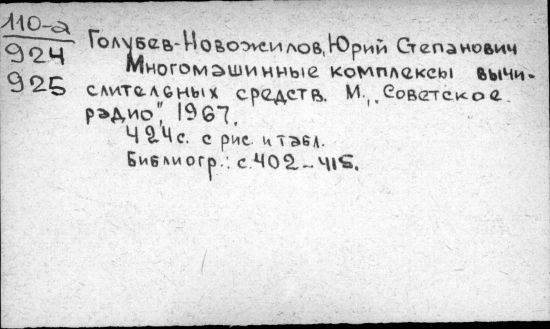 110-а
924
925
Голубев-Новожилов, Юрий Степанович
Многомашинные комплексы вычи-
слительных средств. М., „Советское
радио", 1967.
424 с. с рис. и табл.
Библиогр.: с. 402-415.